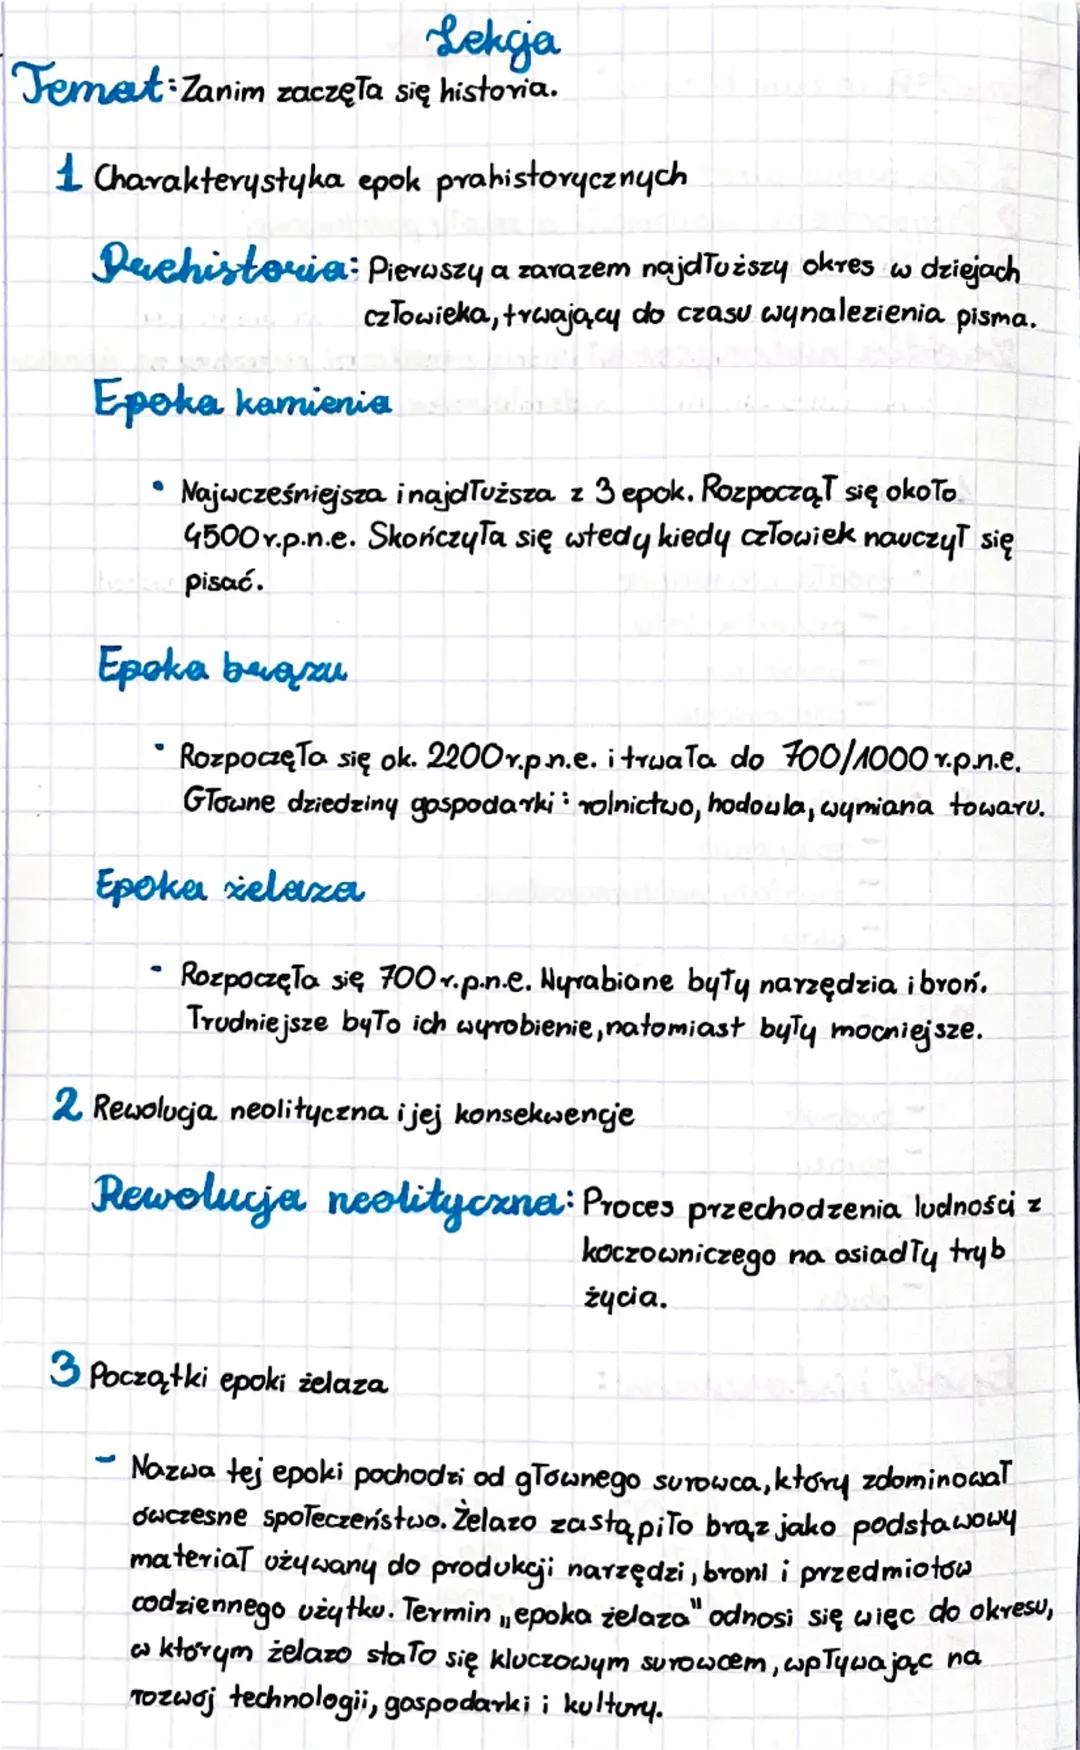 Lekcja
Temat: Zanim zaczęła się historia.
1 Charakterystyka epok prahistorycznych
Prehistoria: Pierwszy a zarazem najdłuższy okres w dziejach
człowieka, trwający do czasu wynalezienia pisma.
Epoka kamienia
• Najwcześniejsza i najdłuższa z 3 epok. Rozpoczął się około
4500 r.p.n.e. Skończyła się wtedy kiedy człowiek nauczył się
pisać.
Epoka brązu
• Rozpoczęła się ok. 2200 r.p.n.e. i trwała do 700/1000 r.p.n.e.
Główne dziedziny gospodarki: rolnictwo, hodowla, wymiana towaru.
Epoka żelaza
- Rozpoczęła się 700 r.p.n.e. Wyrabiane były narzędzia i broń.
Trudniejsze było ich wyrobienie, natomiast były mocniejsze.
2 Rewolucja neolityczna i jej konsekwencje
Rewolucja neolityczna: Proces przechodzenia ludności z
koczowniczego na osiadły tryb
życia.
3 Początki epoki żelaza
- Nazwa tej epoki pochodzi od głównego surowca, który zdominował
ówczesne społeczeństwo. Żelazo zastąpiło brąz jako podstawowy
materiał używany do produkcji narzędzi, broni i przedmiotów
codziennego użytku. Termin „epoka żelaza" odnosi się więc do okresu,
w którym żelazo stało się kluczowym surowcem, wpływając na
rozwój technologii, gospodarki i kultury.